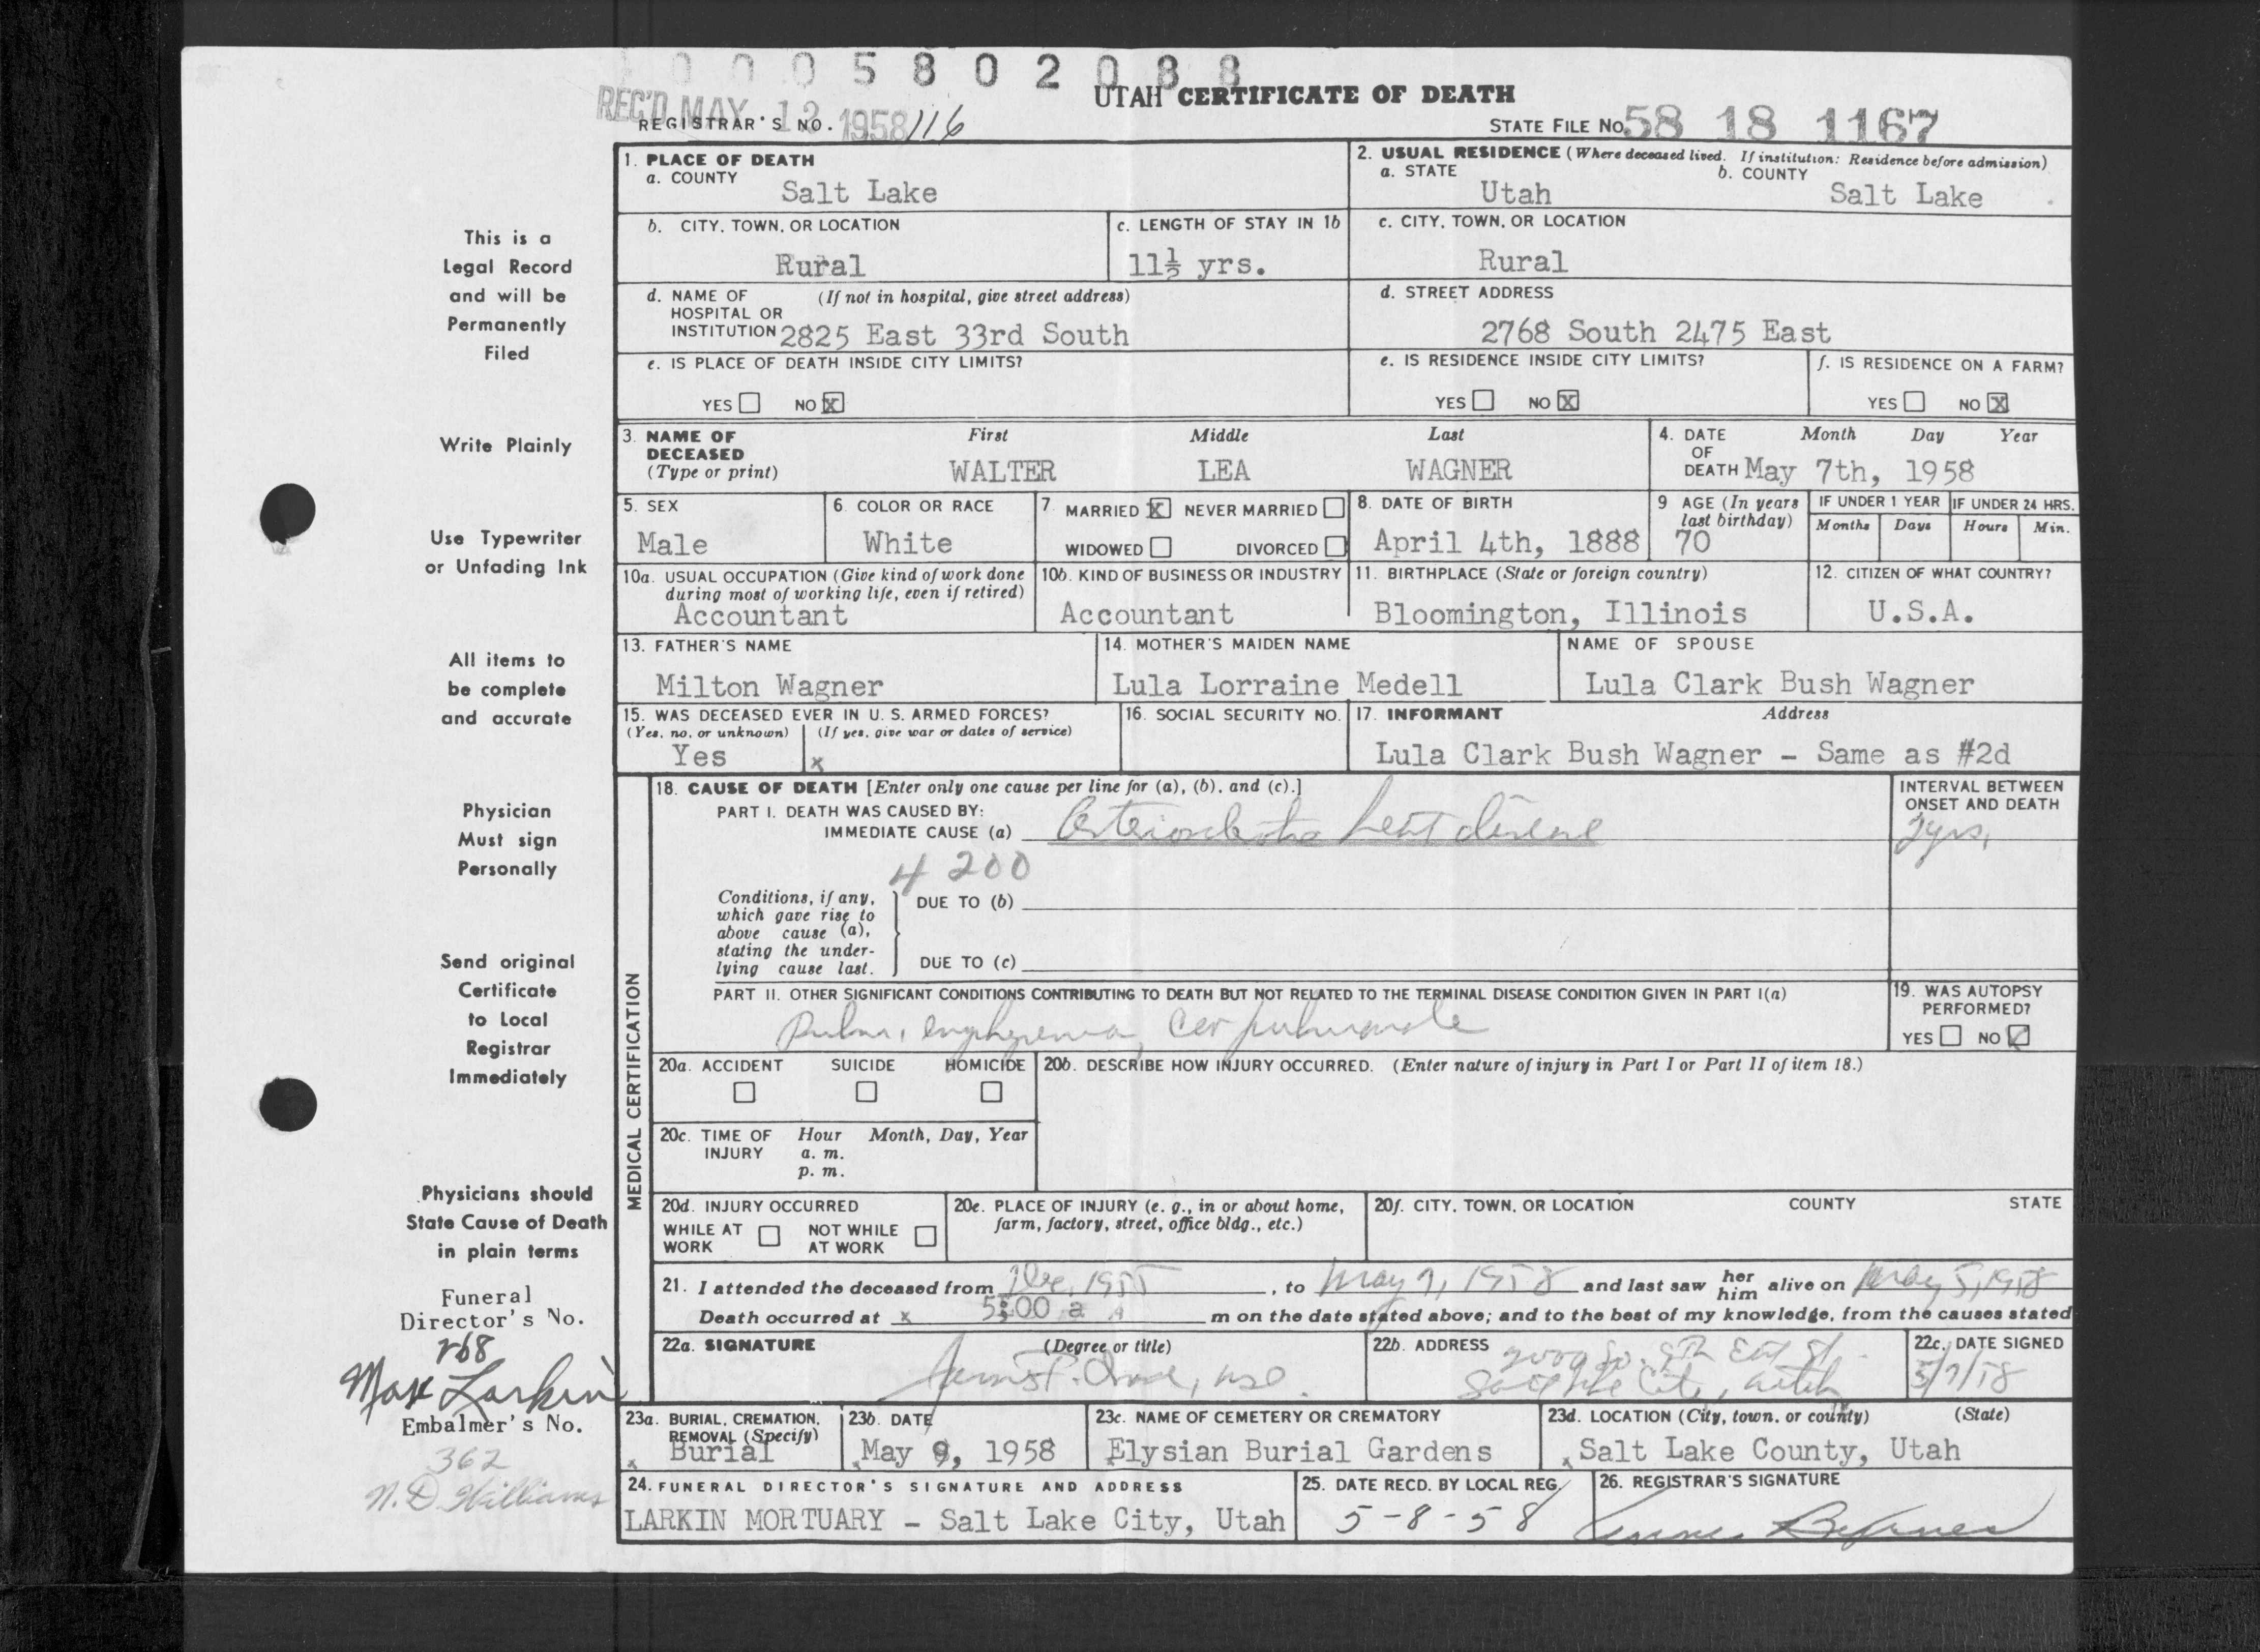 0 0 0 5 8 0 2 0 8 8
REC'D MAY 12 1958
UTAH CERTIFICATE OF DEATH
REGISTRAR'S NO. 116
STATE FILE No. 58 18 1167
1. PLACE OF DEATH
a. COUNTY
Salt Lake
2. USUAL RESIDENCE (Where deceased lived. If institution: Residence before admission)
a. STATE
Utah
b. COUNTY
Salt Lake
b. CITY, TOWN, OR LOCATION
Rural
c. LENGTH OF STAY IN 1b
11½ yrs.
c. CITY, TOWN, OR LOCATION
Rural
d. NAME OF HOSPITAL OR INSTITUTION
(If not in hospital, give street address)
2825 East 33rd South
d. STREET ADDRESS
2768 South 2475 East
e. IS PLACE OF DEATH INSIDE CITY LIMITS?
YES NO X
e. IS RESIDENCE INSIDE CITY LIMITS?
YES NO X
f. IS RESIDENCE ON A FARM?
YES NO X
3. NAME OF DECEASED
(Type or print)
First Middle Last
WALTER LEA WAGNER
4. DATE OF DEATH
Month Day Year
May 7th, 1958
5. SEX
Male
6. COLOR OR RACE
White
7. MARRIED X NEVER MARRIED
WIDOWED DIVORCED
8. DATE OF BIRTH
April 4th, 1888
9 AGE (In years last birthday)
70
IF UNDER 1 YEAR
Months Days
IF UNDER 24 HRS.
Hours Min.
10a. USUAL OCCUPATION (Give kind of work done during most of working life, even if retired)
Accountant
10b. KIND OF BUSINESS OR INDUSTRY
Accountant
11. BIRTHPLACE (State or foreign country)
Bloomington, Illinois
12. CITIZEN OF WHAT COUNTRY?
U.S.A.
13. FATHER'S NAME
Milton Wagner
14. MOTHER'S MAIDEN NAME
Lula Lorraine Medell
NAME OF SPOUSE
Lula Clark Bush Wagner
15. WAS DECEASED EVER IN U. S. ARMED FORCES?
(Yes, no, or unknown) (If yes, give war or dates of service)
Yes x
16. SOCIAL SECURITY NO.
17. INFORMANT Address
Lula Clark Bush Wagner - Same as #2d
MEDICAL CERTIFICATION
18. CAUSE OF DEATH [Enter only one cause per line for (a), (b), and (c).]
PART I. DEATH WAS CAUSED BY:
IMMEDIATE CAUSE (a) Arteriosclerotic heart disease
INTERVAL BETWEEN ONSET AND DEATH
2yrs,
4 200
Conditions, if any, which gave rise to above cause (a), stating the underlying cause last.
DUE TO (b)
DUE TO (c)
PART II. OTHER SIGNIFICANT CONDITIONS CONTRIBUTING TO DEATH BUT NOT RELATED TO THE TERMINAL DISEASE CONDITION GIVEN IN PART I(a)
Pulm. emphysema, Cor pulmonale
19. WAS AUTOPSY PERFORMED?
YES NO
20a. ACCIDENT SUICIDE HOMICIDE
20b. DESCRIBE HOW INJURY OCCURRED. (Enter nature of injury in Part I or Part II of item 18.)
20c. TIME OF INJURY
Hour Month, Day, Year
a. m.
p. m.
20d. INJURY OCCURRED
WHILE AT WORK NOT WHILE AT WORK
20e. PLACE OF INJURY (e. g., in or about home, farm, factory, street, office bldg., etc.)
20f. CITY, TOWN, OR LOCATION COUNTY STATE
21. I attended the deceased from Dec. 1955, to May 7, 1958 and last saw her him alive on May 5, 1958
Death occurred at x 5:00 a m on the date stated above; and to the best of my knowledge, from the causes stated
22a. SIGNATURE (Degree or title)
22b. ADDRESS
Salt Lake City, Utah
22c. DATE SIGNED
5/7/58
23a. BURIAL, CREMATION, REMOVAL (Specify)
Burial
23b. DATE
May 9, 1958
23c. NAME OF CEMETERY OR CREMATORY
Elysian Burial Gardens
23d. LOCATION (City, town, or county) (State)
Salt Lake County, Utah
24. FUNERAL DIRECTOR'S SIGNATURE AND ADDRESS
LARKIN MORTUARY - Salt Lake City, Utah
25. DATE RECD. BY LOCAL REG.
5-8-58
26. REGISTRAR'S SIGNATURE
This is a
Legal Record
and will be
Permanently
Filed
Write Plainly
Use Typewriter
or Unfading Ink
All items to
be complete
and accurate
Physician
Must sign
Personally
Send original
Certificate
to Local
Registrar
Immediately
Physicians should
State Cause of Death
in plain terms
Funeral
Director's No.
268
Max Larkin
Embalmer's No.
362
N. D. Williams